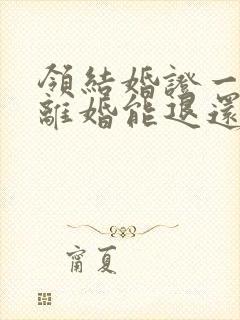 領結婚證一
離婚能退還
甯夏